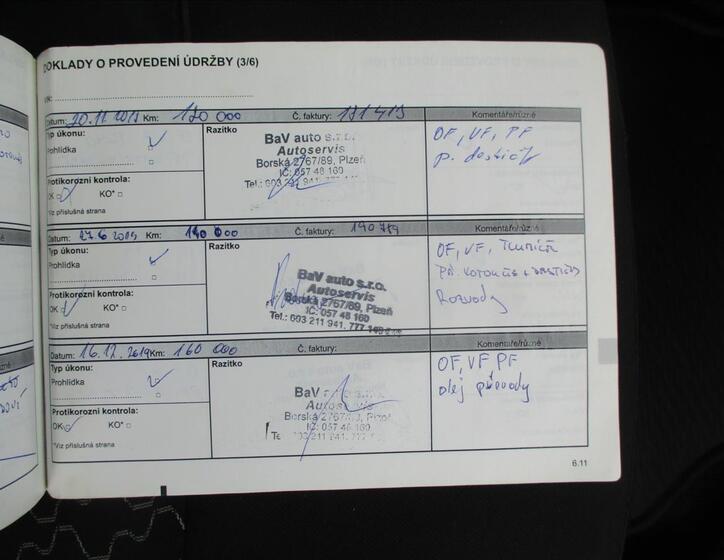 DOKLADY O PROVEDENÍ ÚDRŽBY (3/6)
VIN:
Datum: 20.11 2018 Km: 120 000 Č. faktury: 181419 Komentáře/různé
Typ úkonu:
Prohlídka
Protikorozní kontrola:
OK KO*
*Viz příslušná strana
Razítko
BaV auto s.r.o.
Autoservis
Borská 2767/89, Plzeň
IČ: 057 48 160
Tel.: 603 211 941, 777
OF, VF, PF
p. destičky
Datum: 27.6 2019 Km: 140 000 Č. faktury: 190789 Komentáře/různé
Typ úkonu:
Prohlídka
Protikorozní kontrola:
OK KO*
*Viz příslušná strana
Razítko
BaV auto s.r.o.
Autoservis
Borská 2767/89, Plzeň
IČ: 057 48 160
Tel.: 603 211 941, 777
OF, VF, TLUMIČE
PŘ. KOTOUČE + DESTIČKY
Rozvody
Datum: 16.12.2019 Km: 160 000 Č. faktury: Komentáře/různé
Typ úkonu:
Prohlídka
Protikorozní kontrola:
OK KO*
*Viz příslušná strana
Razítko
BaV auto s.r.o.
Autoservis
Borská 2767/89, Plzeň
IČ: 057 48 160
Tel.: 603 211 941, 777
OF, VF PF
olej převody
6.11